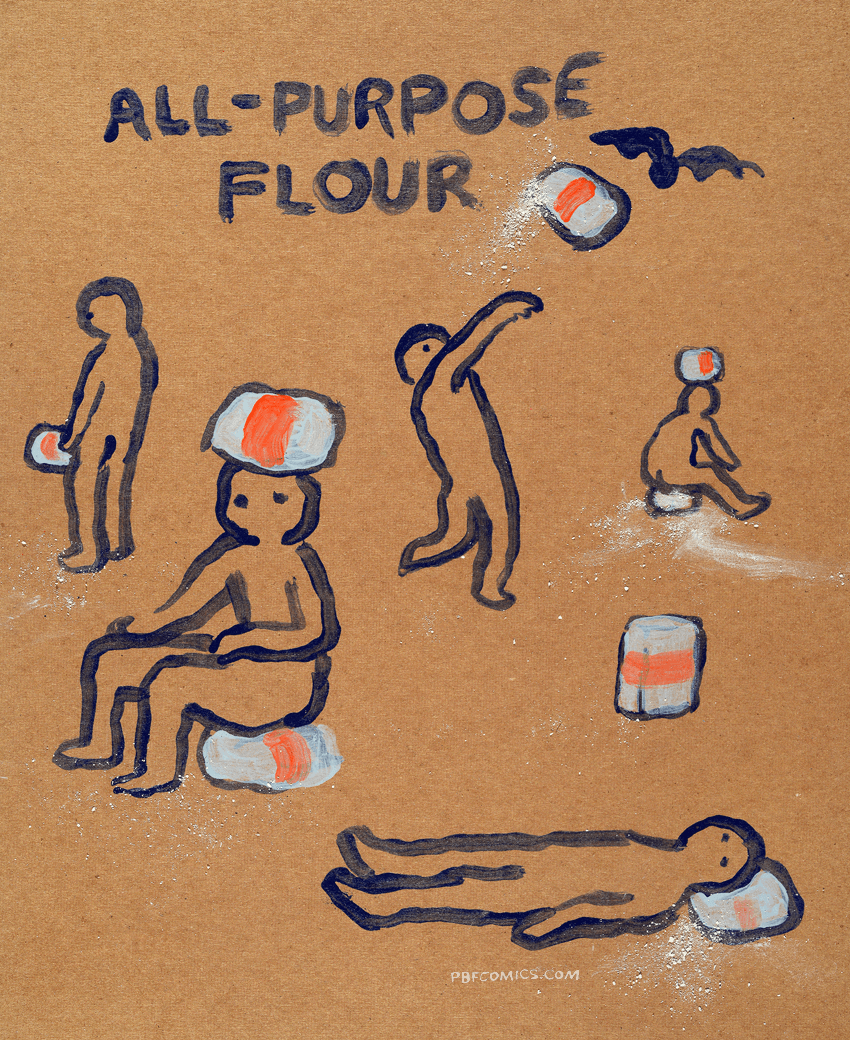 ALL-PURPOSE
FLOUR
PBFCOMICS.COM